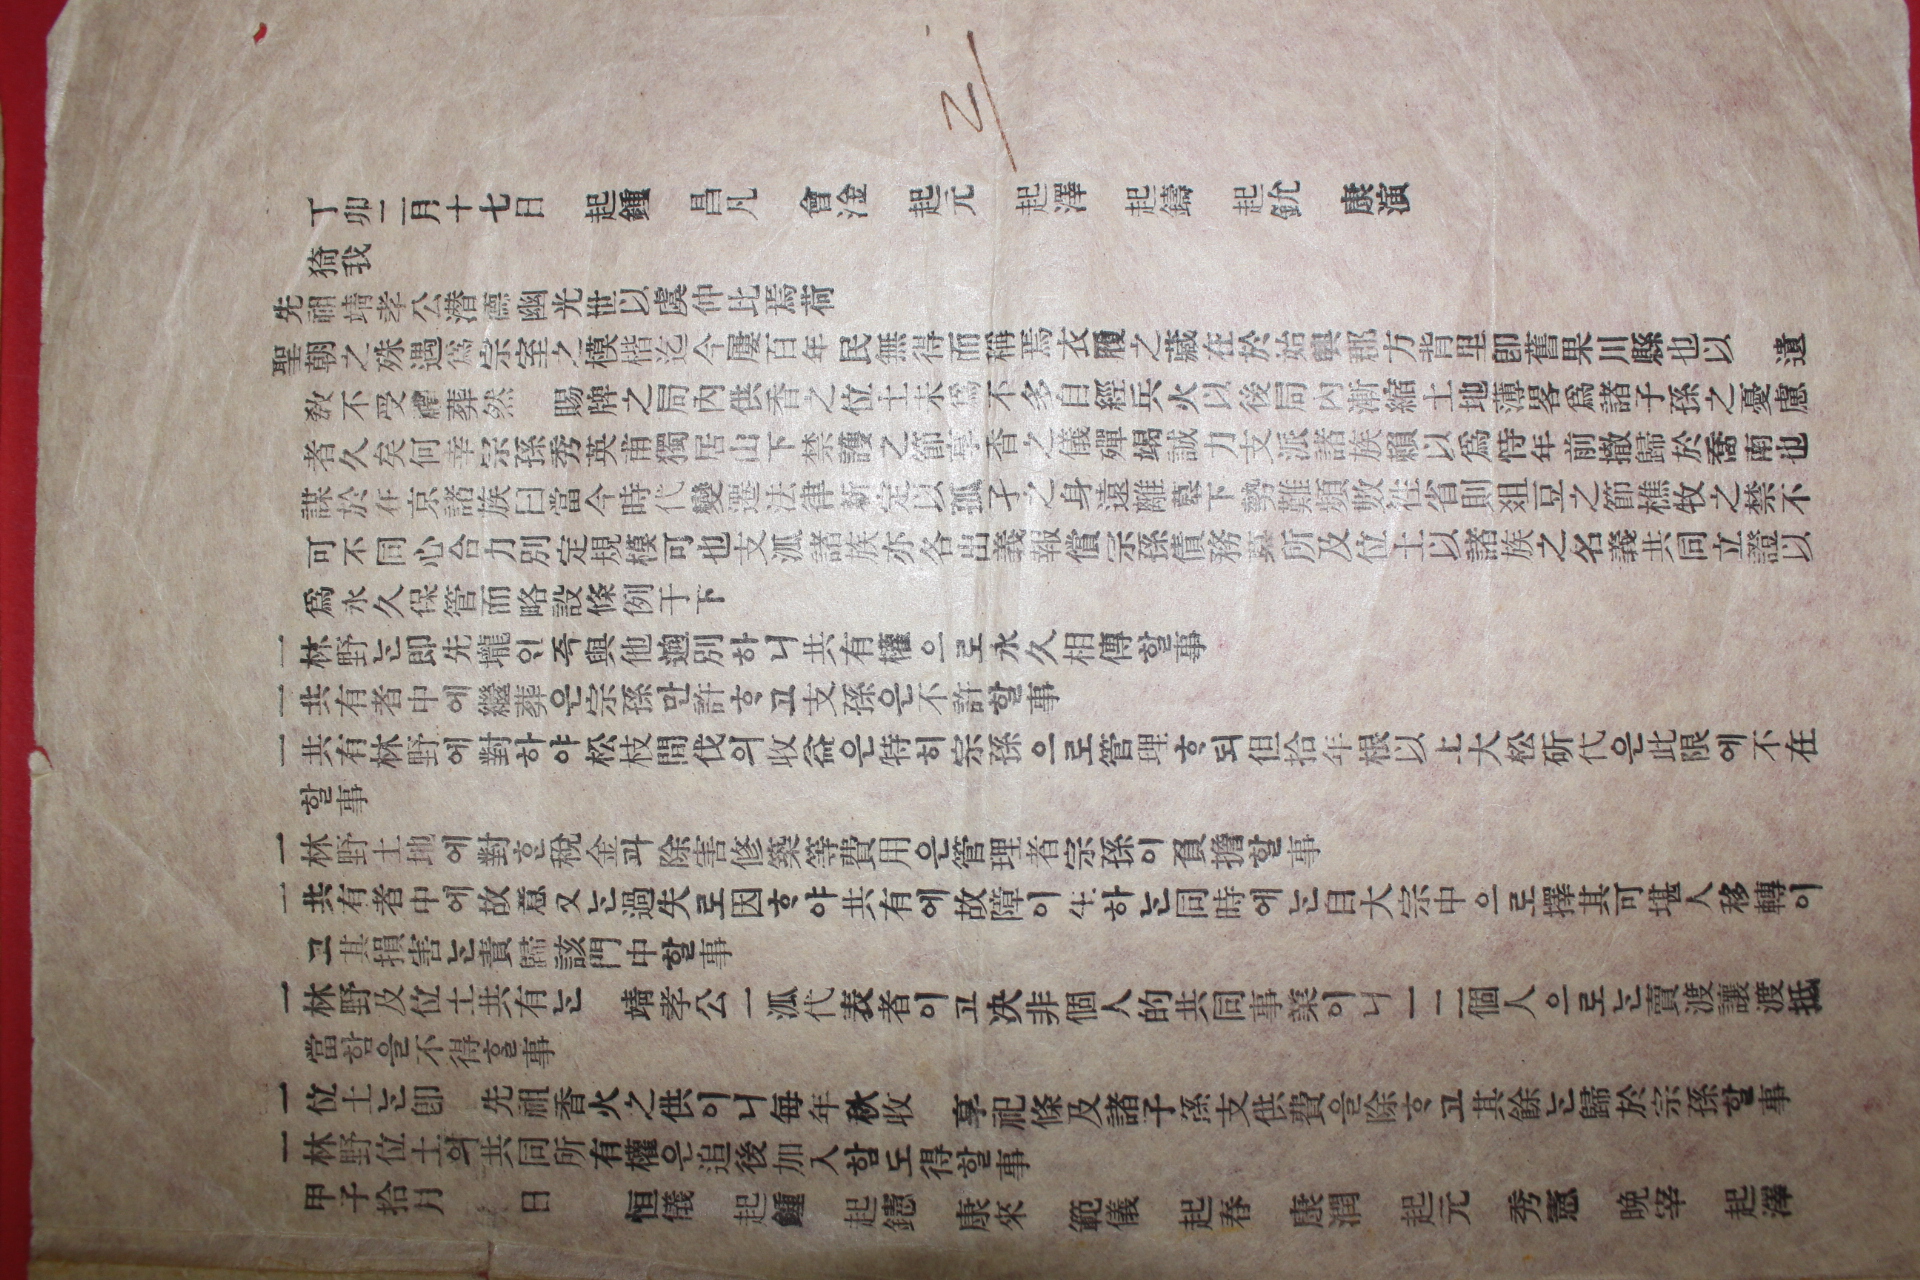 丁卯二月十七日 起鍾 昌凡 會淦 起元 起澤 起鑄 起鈗 康演
猗我
先祖靖孝公潛德幽光世以虞仲比焉荷
聖朝之殊遇爲宗室之模楷迄今屢百年民無得而稱焉衣履之藏在於始興郡方背里卽舊果川縣也以 遺
敎不受禮葬然 賜牌之局內供香之位土未爲不多自經兵火以後局內漸縮土地薄畧爲諸子孫之憂慮
者久矣何幸宗孫秀英甫獨居山下禁護之節享香之儀殫竭誠力支派諸族賴以爲恃年前撤歸於喬南也
謀於在京諸族曰當今時代變遷法律新定以孤孑之身遠離墓下勢難頻數往省則爼豆之節樵牧之禁不
可不同心合力別定規模可也支派諸族亦各出義報償宗孫債務 所及位土以諸族之名義共同立證以
爲永久保管而略設條例于下
一林野는即先壠인즉與他逈別하니共有權으로永久相傳할事
一共有者中에繼葬은宗孫만許ᄒᆞ고支孫은不許할事
一共有林野에對하야松枝間伐의收益은特히宗孫으로管理ᄒᆞ되但拾年根以上大松斫伐은此限에不在
할事
一林野土地에對ᄒᆞᆫ稅金과除害修築等費用은管理者宗孫이負擔할事
一共有者中에故意又는過失로因ᄒᆞ야共有에故障이生하는同時에는自大宗中으로擇其可堪人移轉이
고其損害는責歸該門中할事
一林野及位土共有는 靖孝公一派代表者이고决非個人的共同事業이니一二個人으로는賣渡讓渡抵
當함을不得할事
一位土는卽 先祖香火之供이니每年秋收 享祀條及諸子孫支供費을除ᄒᆞ고其餘는歸於宗孫할事
一林野位土의共同所有權은追後加入함도得할事
甲子拾月 日 恒儀 起鍾 起鏸 康來 範儀 起春 康潤 起元 秀憲 晩宰 起澤